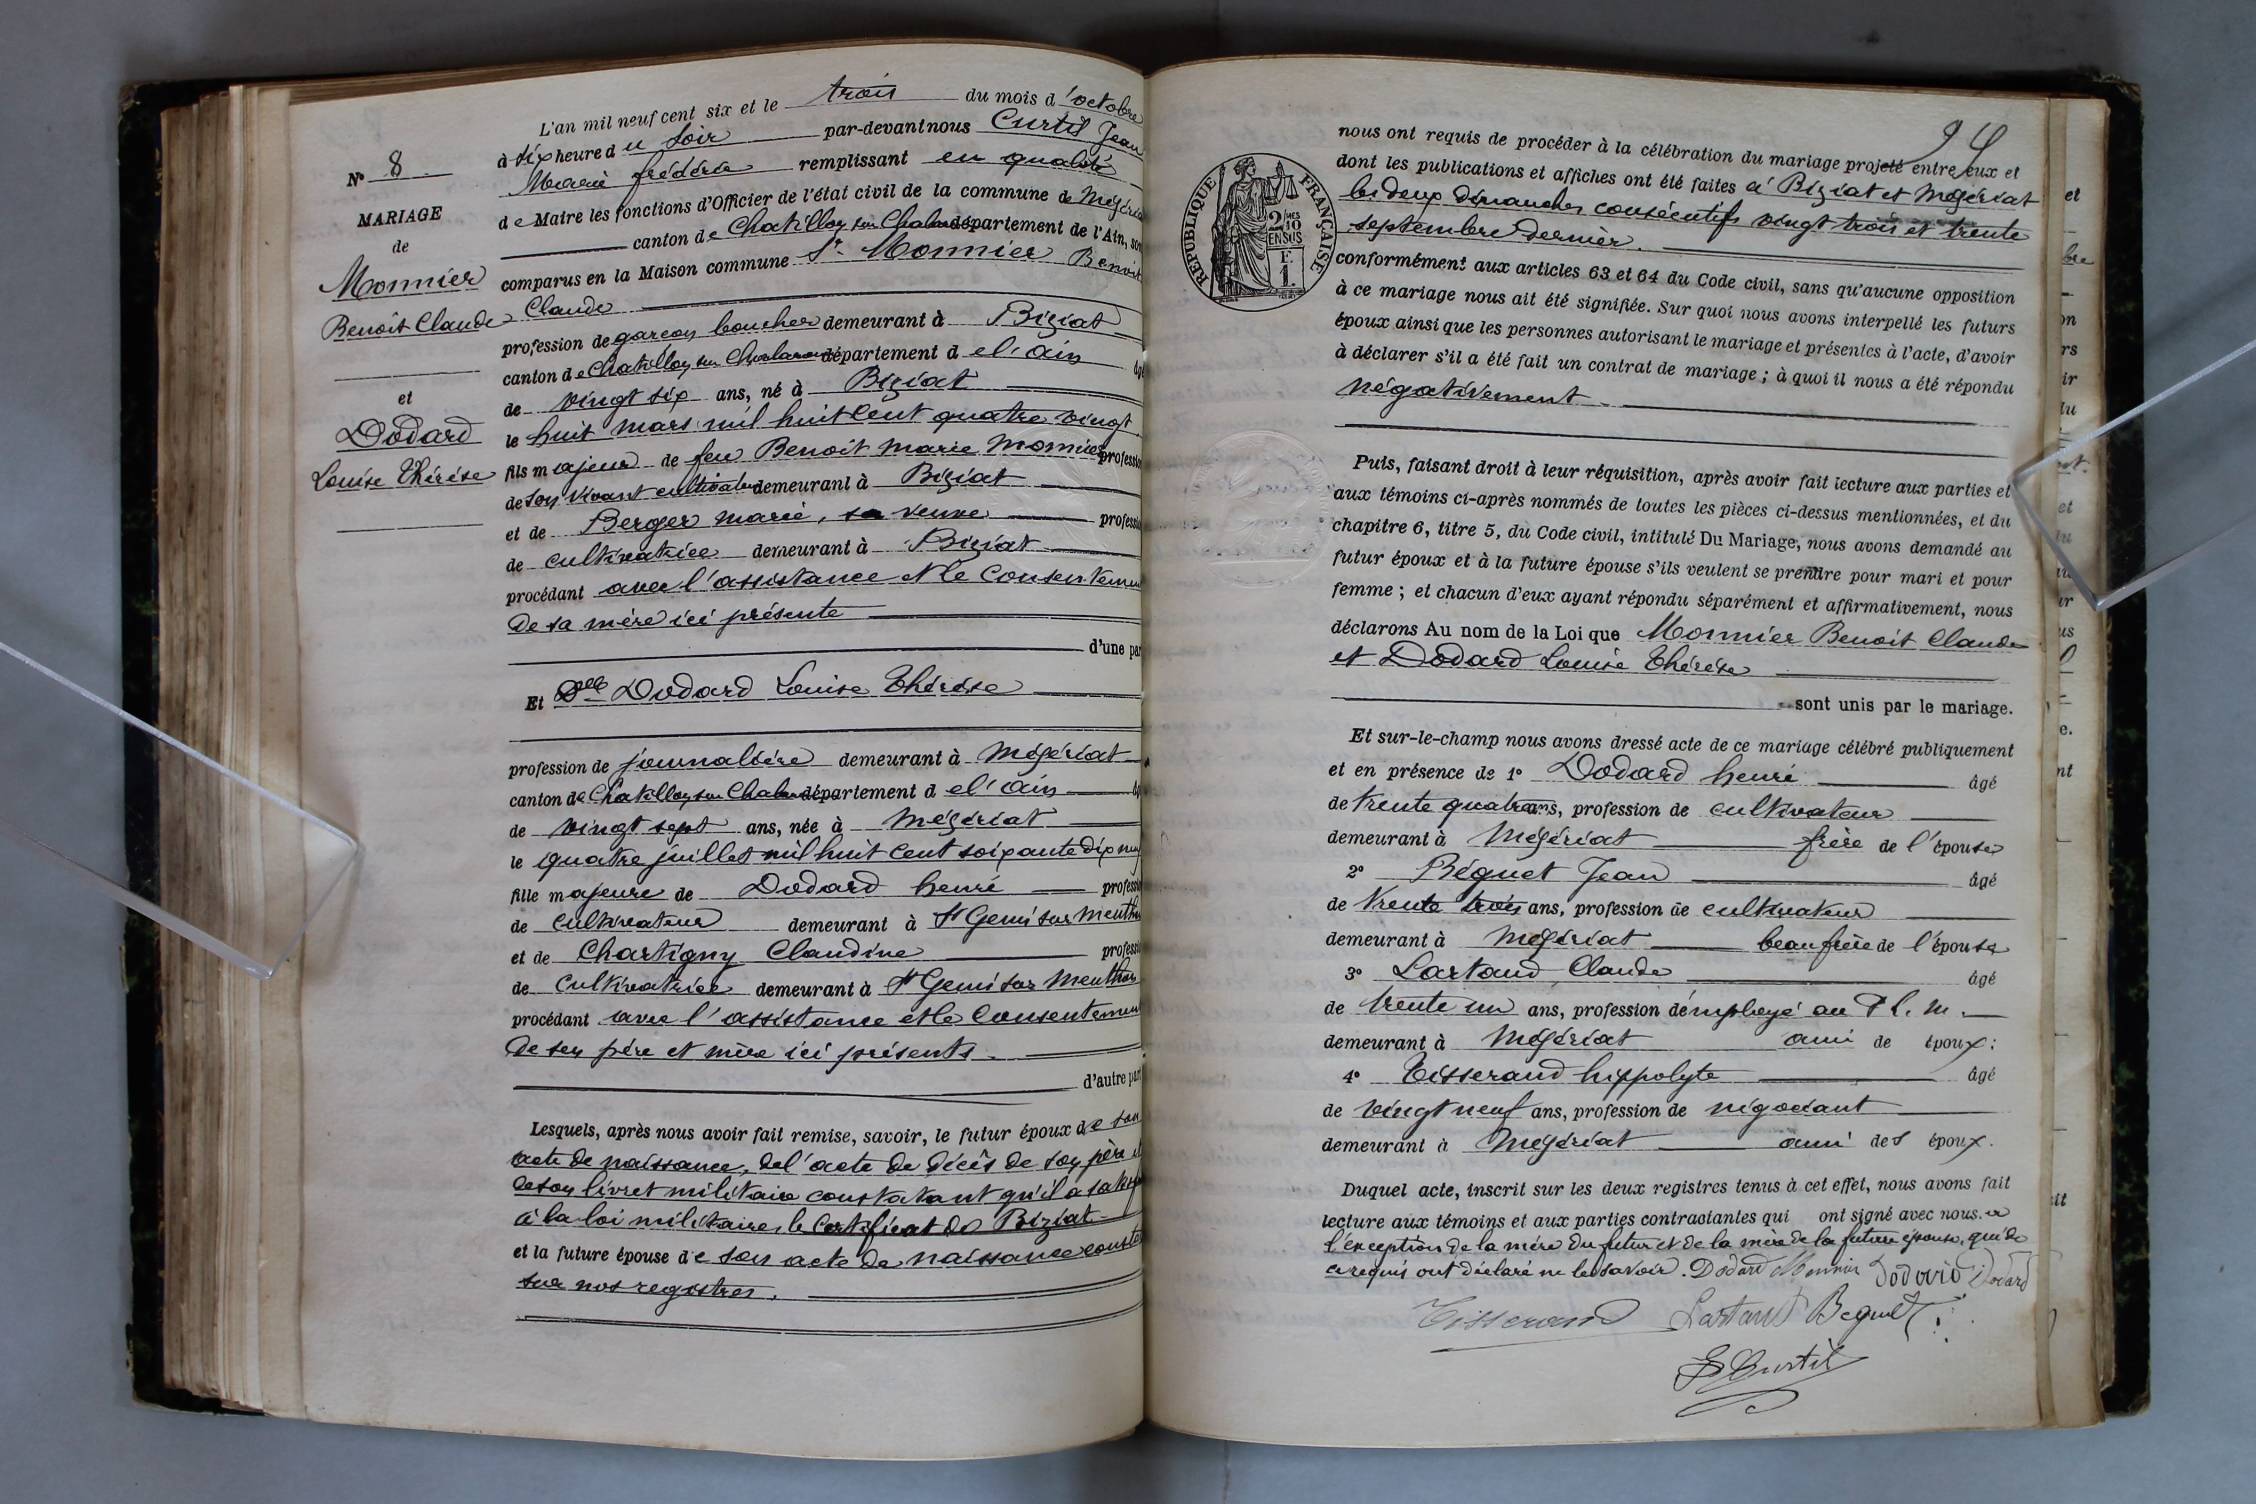 N° 8
MARIAGE
de
Monnier
Benoit Claude
et
Dodard
Louise Thérèse
L'an mil neuf cent six et le trois du mois d'octobre
à six heure du soir par-devant nous Curtil Jean
Marie frédéric remplissant en qualité
de Maire les fonctions d'Officier de l'état civil de la commune de Mézériat
canton de Chatillon sur Chalaronne département de l'Ain, son
comparus en la Maison commune Sr Monnier Benoit
Claude
profession de garçon boucher demeurant à Biziat
canton de Chatillon sur Chalaronne département de l'ain âgé
de vingt six ans, né à Biziat
le huit mars mil huit cent quatre vingt
fils majeur de feu Benoit Marie Monnier profession
de son vivant cultivateur demeurant à Biziat
et de Berger Marie, sa veuve professi
de cultivatrice demeurant à Biziat
procédant avec l'assistance et le consentement
de sa mère ici présente
d'une par
Et Delle Dodard Louise Thérèse
profession de journalière demeurant à Mézériat
canton de Chatillon sur Chalaronne département de l'ain âg
de vingt sept ans, née à Mézériat
le quatre juillet mil huit cent soixante dix neuf
fille majeure de Dodard henri professi
de cultivateur demeurant à St Genis sur Menthon
et de Chartigny Claudine professi
de cultivatrice demeurant à St Genis sur Menthon
procédant avec l'assistance et le consentement
de ses père et mère ici présents.
d'autre part
Lesquels, après nous avoir fait remise, savoir, le futur époux de son
acte de naissance, de l'acte de décès de son père et
de son livret militaire constatant qu'il a satisfait
à la loi militaire, le certificat de Biziat
et la future épouse de son acte de naissance consté
sur nos registres.
94
RÉPUBLIQUE FRANÇAISE
2/10MES
EN SUS
F.
1.
nous ont requis de procéder à la célébration du mariage projeté entre eux et
dont les publications et affiches ont été faites à Biziat et Mézériat
les deux dimanches consécutifs vingt trois et trente
septembre dernier.
conformément aux articles 63 et 64 du Code civil, sans qu'aucune opposition
à ce mariage nous ait été signifiée. Sur quoi nous avons interpellé les futurs
époux ainsi que les personnes autorisant le mariage et présentes à l'acte, d'avoir
à déclarer s'il a été fait un contrat de mariage ; à quoi il nous a été répondu
négativement
Puis, faisant droit à leur réquisition, après avoir fait lecture aux parties et
aux témoins ci-après nommés de toutes les pièces ci-dessus mentionnées, et du
chapitre 6, titre 5, du Code civil, intitulé Du Mariage, nous avons demandé au
futur époux et à la future épouse s'ils veulent se prendre pour mari et pour
femme ; et chacun d'eux ayant répondu séparément et affirmativement, nous
déclarons Au nom de la Loi que Monnier Benoit Claude
et Dodard Louise Thérèse
sont unis par le mariage.
Et sur-le-champ nous avons dressé acte de ce mariage célébré publiquement
et en présence de 1° Dodard henri âgé
de trente quatre ans, profession de cultivateur
demeurant à Mézériat frère de l'épouse
2° Béguet Jean âgé
de trente trois ans, profession de cultivateur
demeurant à Mézériat beau frère de l'épouse
3° Lartaud Claude âgé
de trente un ans, profession d'employé au P.l.m.
demeurant à Mézériat ami de époux;
4° Tisserand hippolyte âgé
de vingt neuf ans, profession de négociant
demeurant à Mézériat ami des époux.
Duquel acte, inscrit sur les deux registres tenus à cet effet, nous avons fait
lecture aux témoins et aux parties contractantes qui ont signé avec nous. a
l'exception de la mère du futur et de la mère de la future épouse, qui de
ce requis ont déclaré ne le savoir. Dodard Monnier Dodard Dodard
Tisserand Lartaud Beguet
Curtil